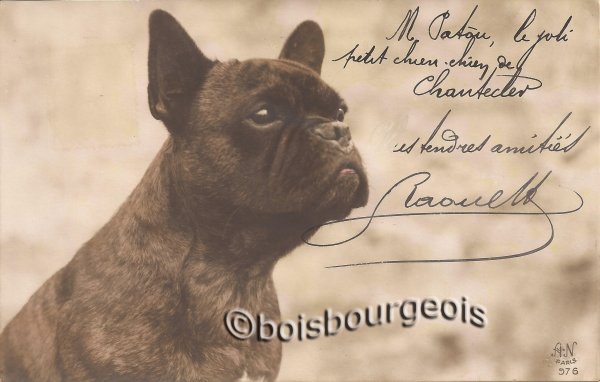 M. Patou, le joli
petit chien-chien de
Chantecler
es tendres amitiés
Raoul
©boisbourgeois
A.N
PARIS
976